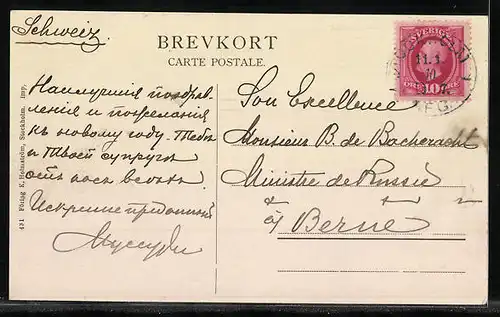 Schweiz.
BREVKORT
CARTE POSTALE.
Наилучшія поздрав-
ленія и пожеланія
къ новому году. Тебѣ
и Твоей супругѣ
отъ насъ всѣхъ.
Искренне преданный
Son Excellence
Monsieur B. de Bacheracht
Ministre de Russie
à
Berne
SVERIGE
10
11.1.
10
431 Förlag E. Holmström, Stockholm. Imp.